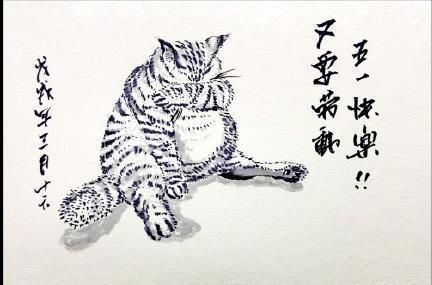 五一快樂!!
又要劳動
戊戌年三月十六